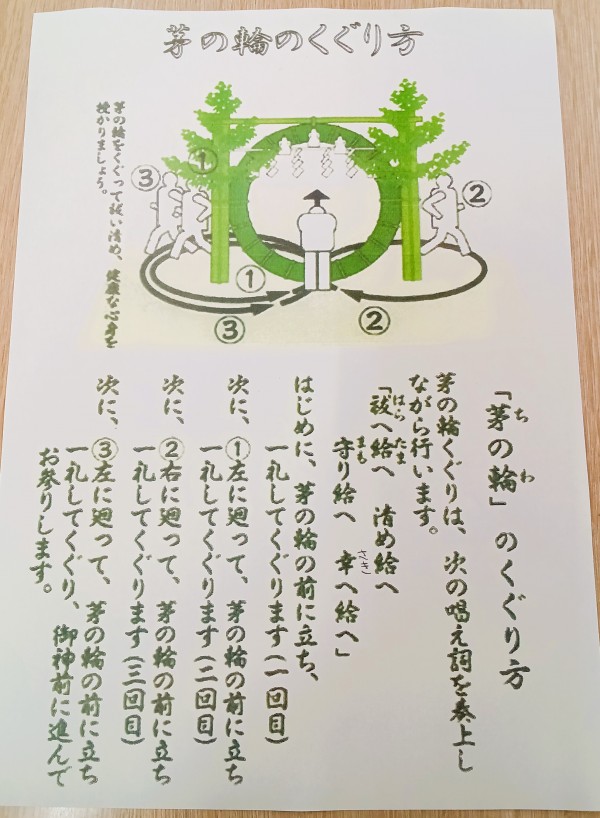 茅の輪のくぐり方
茅の輪をくぐって祓い清め、健康な心身を
授かりましょう。
①
②
③
①
②
③
「茅の輪」のくぐり方
ち
わ
茅の輪くぐりは、次の唱え詞を奏上し
ながら行います。
「祓へ給へ　清め給へ
はら
たま
守り給へ　幸へ給へ」
まも
さき
はじめに、茅の輪の前に立ち、
一礼してくぐります(一回目)
次に、①左に廻って、茅の輪の前に立ち
一礼してくぐります(二回目)
次に、②右に廻って、茅の輪の前に立ち
一礼してくぐります(三回目)
次に、③左に廻って、茅の輪の前に立ち
一礼してくぐり、御神前に進んで
お参りします。